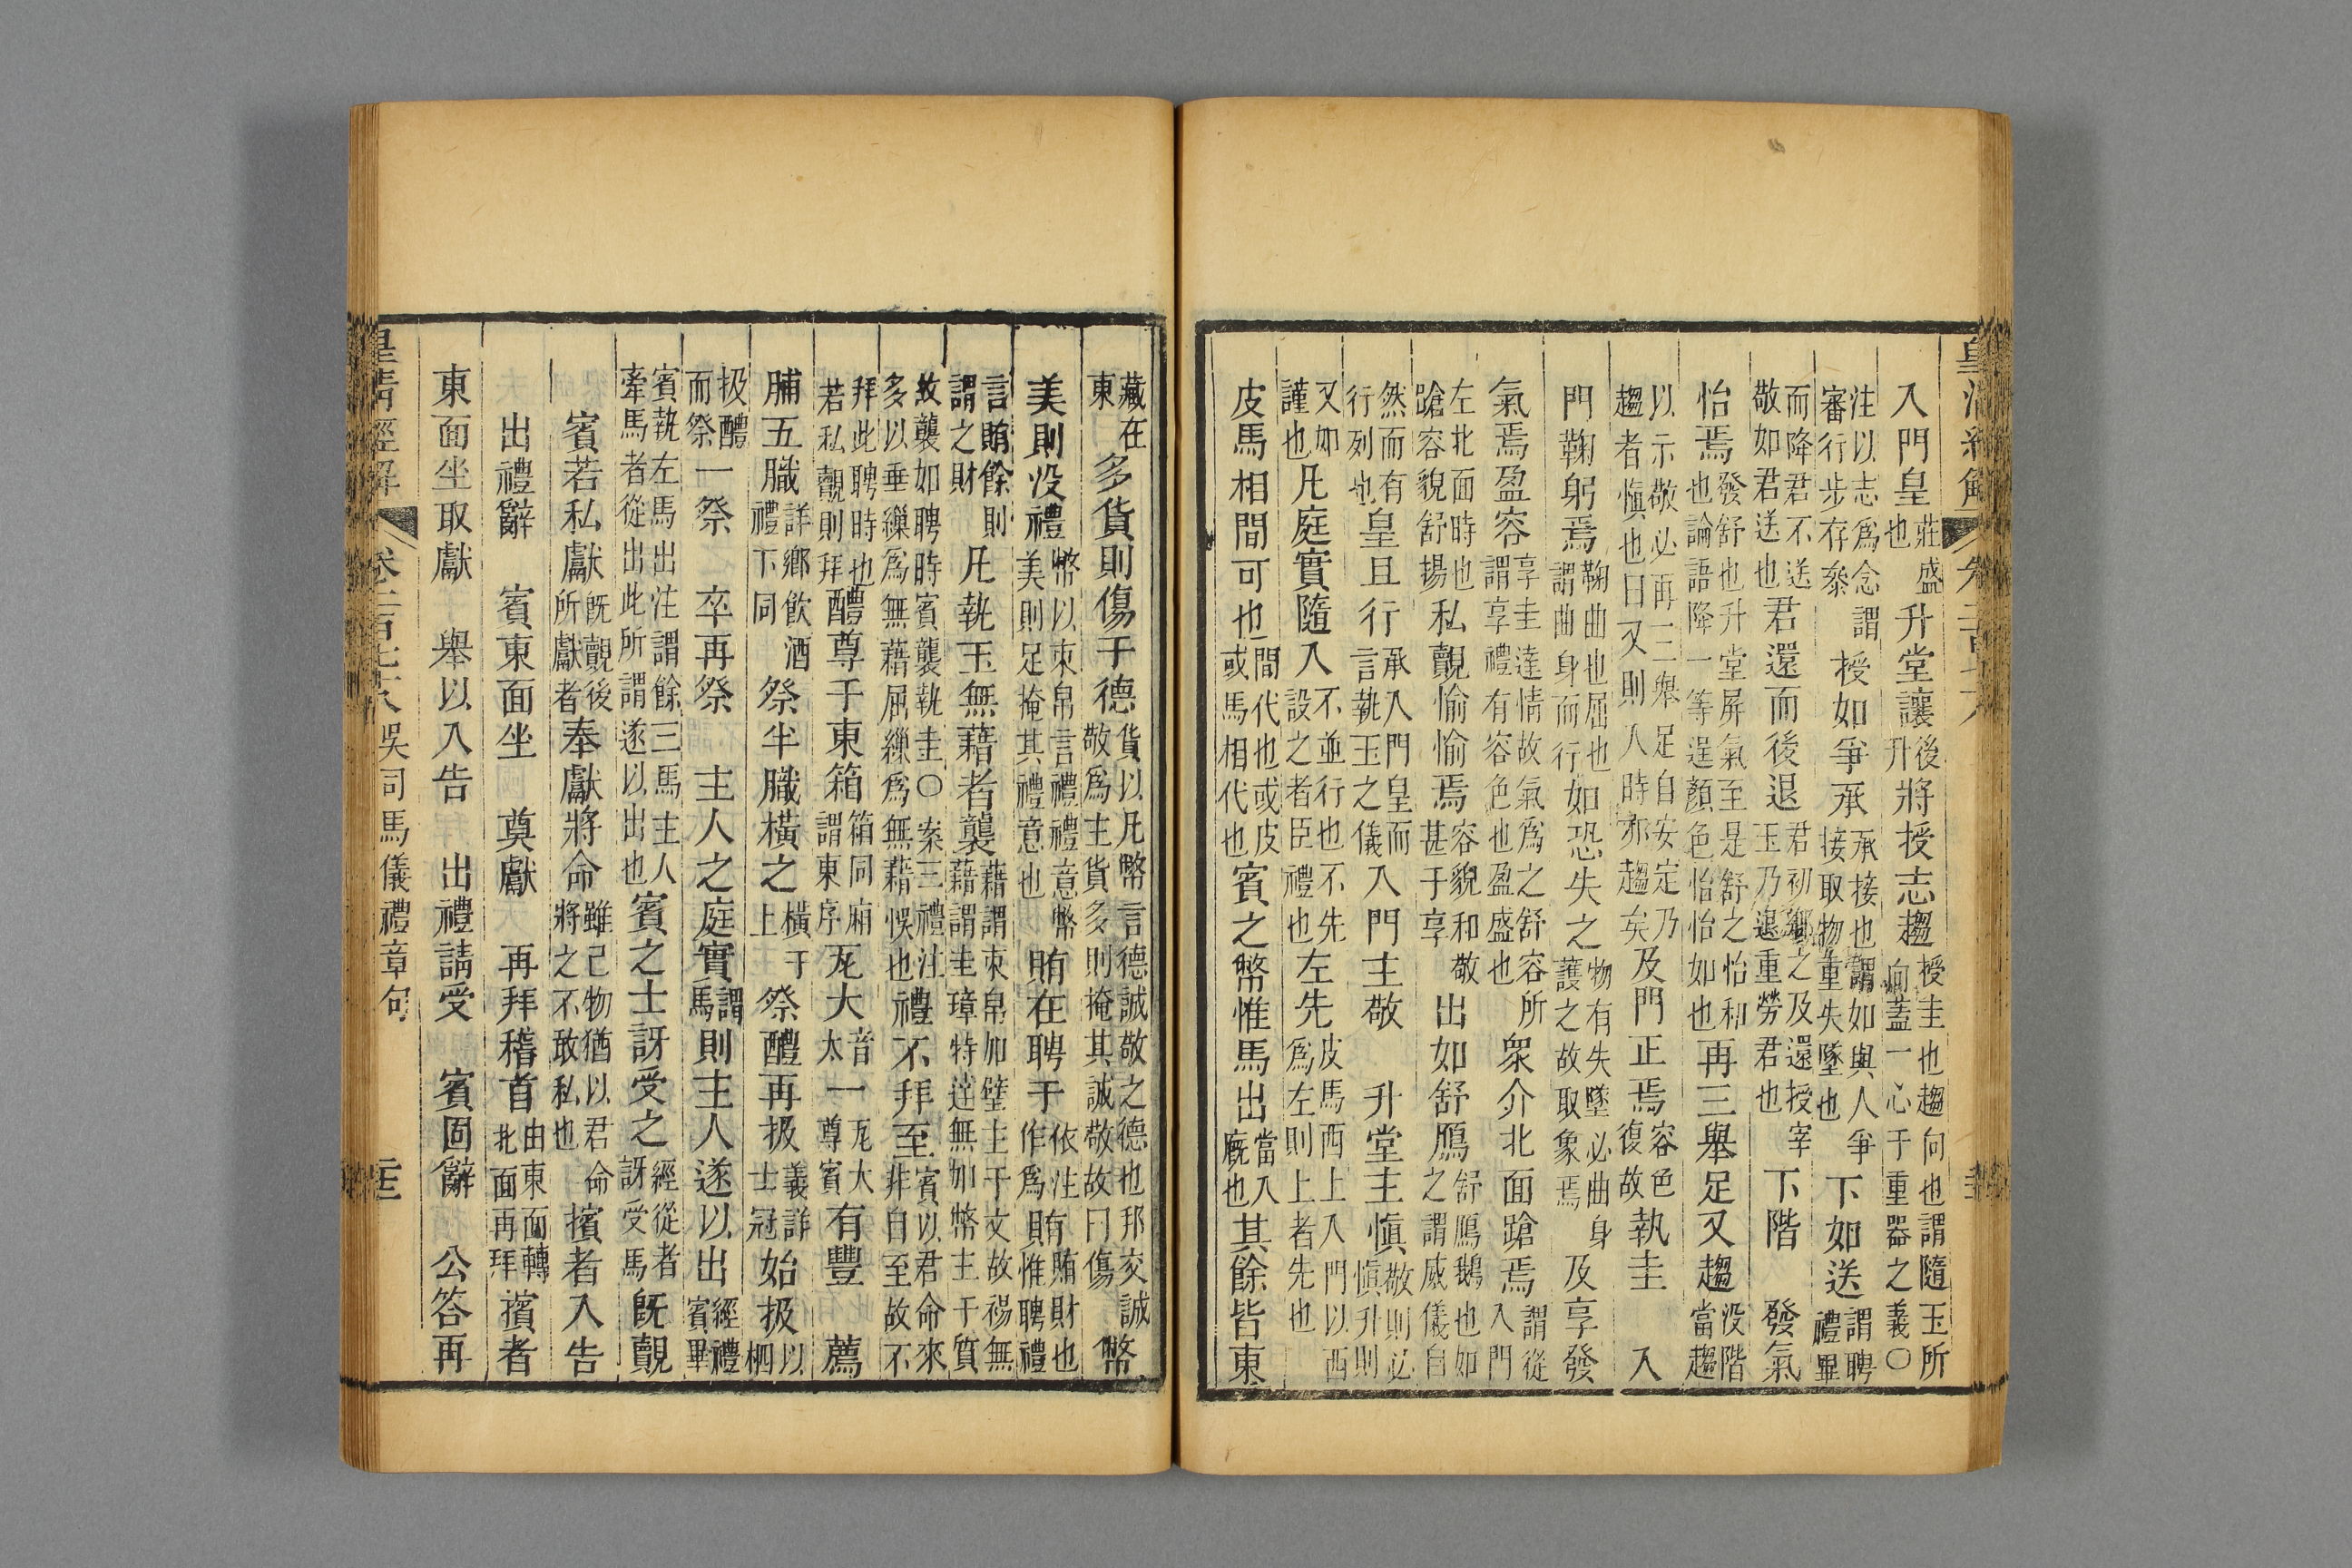 皇清經解
入門皇莊盛也升堂讓後升將授志趨授圭也趨向也謂隨玉所向蓋一心于重器之義〇
注以志爲念謂審行步存叅授如爭承承接也謂如與人爭接取物重失墜也下如送謂聘禮畢
而降君不送敬如君送也君還而後退君初鄉之及還授宰玉乃退重勞君也下階 發氣
怡焉發舒也升堂屏氣至是舒之怡和也論語降一等逞顏色怡怡如也再三舉足又趨没階當趨
以示敬必再三舉足自安定乃趨者慎也曰又則入時亦趨矣及門正焉容色復故執圭 入
門鞠躬焉鞠曲也屈也謂曲身而行如恐失之物有失墜必曲身護之故取象焉及享發
氣焉盈容享圭達情故氣爲之舒容所謂享禮有容色也盈盛也衆介北面蹌焉謂從入門
左北面時也蹌容貌舒揚私覿愉愉焉容貌和敬甚于享出如舒鴈舒鴈鵝也如之謂威儀自
然而有行列也皇且行承入門皇而言執玉之儀入門主敬 升堂主慎敬則必慎升則
又如謹也凡庭實隨入不並行也不先設之者臣禮也左先皮馬西上入門以西爲左則上者先也
皮馬相間可也間代也或皮或馬相代也賓之幣惟馬出當入廐也其餘皆東
藏在東多貨則傷于德貨以凡幣言德誠敬之德也邦交誠敬爲主貨多則掩其誠敬故曰傷幣
美則没禮幣以束帛言禮禮意幣美則足掩其禮意也賄在聘于依注有賄財也作爲貝惟聘禮
言賄餘則謂之財凡執玉無藉者襲藉謂束帛加璧主于文故裼無藉謂圭璋特達無加幣主于質
故襲如聘時賓襲執圭〇案三禮注多以垂繅爲無藉屈繅爲無藉悞也禮不拜至賓以君命來非自至故不
拜此聘時也若私覿則拜醴尊于東箱箱同廂謂東序瓦大音太一瓦大尊賓有豐 薦
脯五膱詳鄉飲酒禮下同祭半膱橫之橫于上祭醴再扱義詳士冠始扱以柶
扱醴而祭一祭 卒再祭 主人之庭實謂馬則主人遂以出經禮賓畢
賓執左馬出注謂餘三馬主人牽馬者從出此所謂遂以出也賓之士訝受之經從者訝受馬旣覿
賓若私獻旣覿後所獻者奉獻將命雖己物猶以君命將之不敢私也擯者入告
出禮辭 賓東面坐 奠獻 再拜稽首由東面轉北面再拜擯者
東面坐取獻 舉以入告 出禮請受 賓固辭 公答再
皇清經解 卷二百七十六 吳司馬儀禮章句